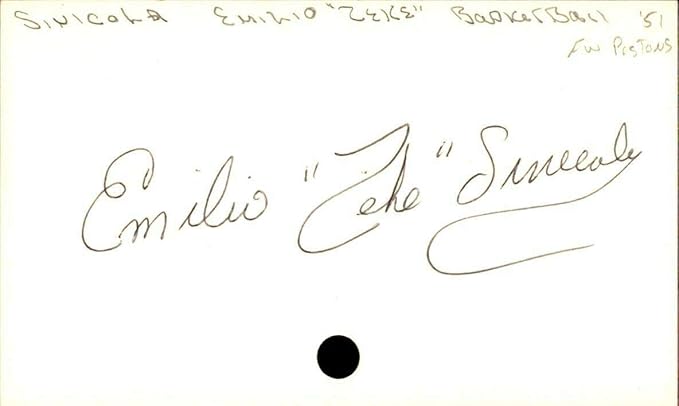 SINICOLA EMILIO "ZEKE" BASKETBALL '51
FW PISTONS
Emilio "Zeke" Sinicola